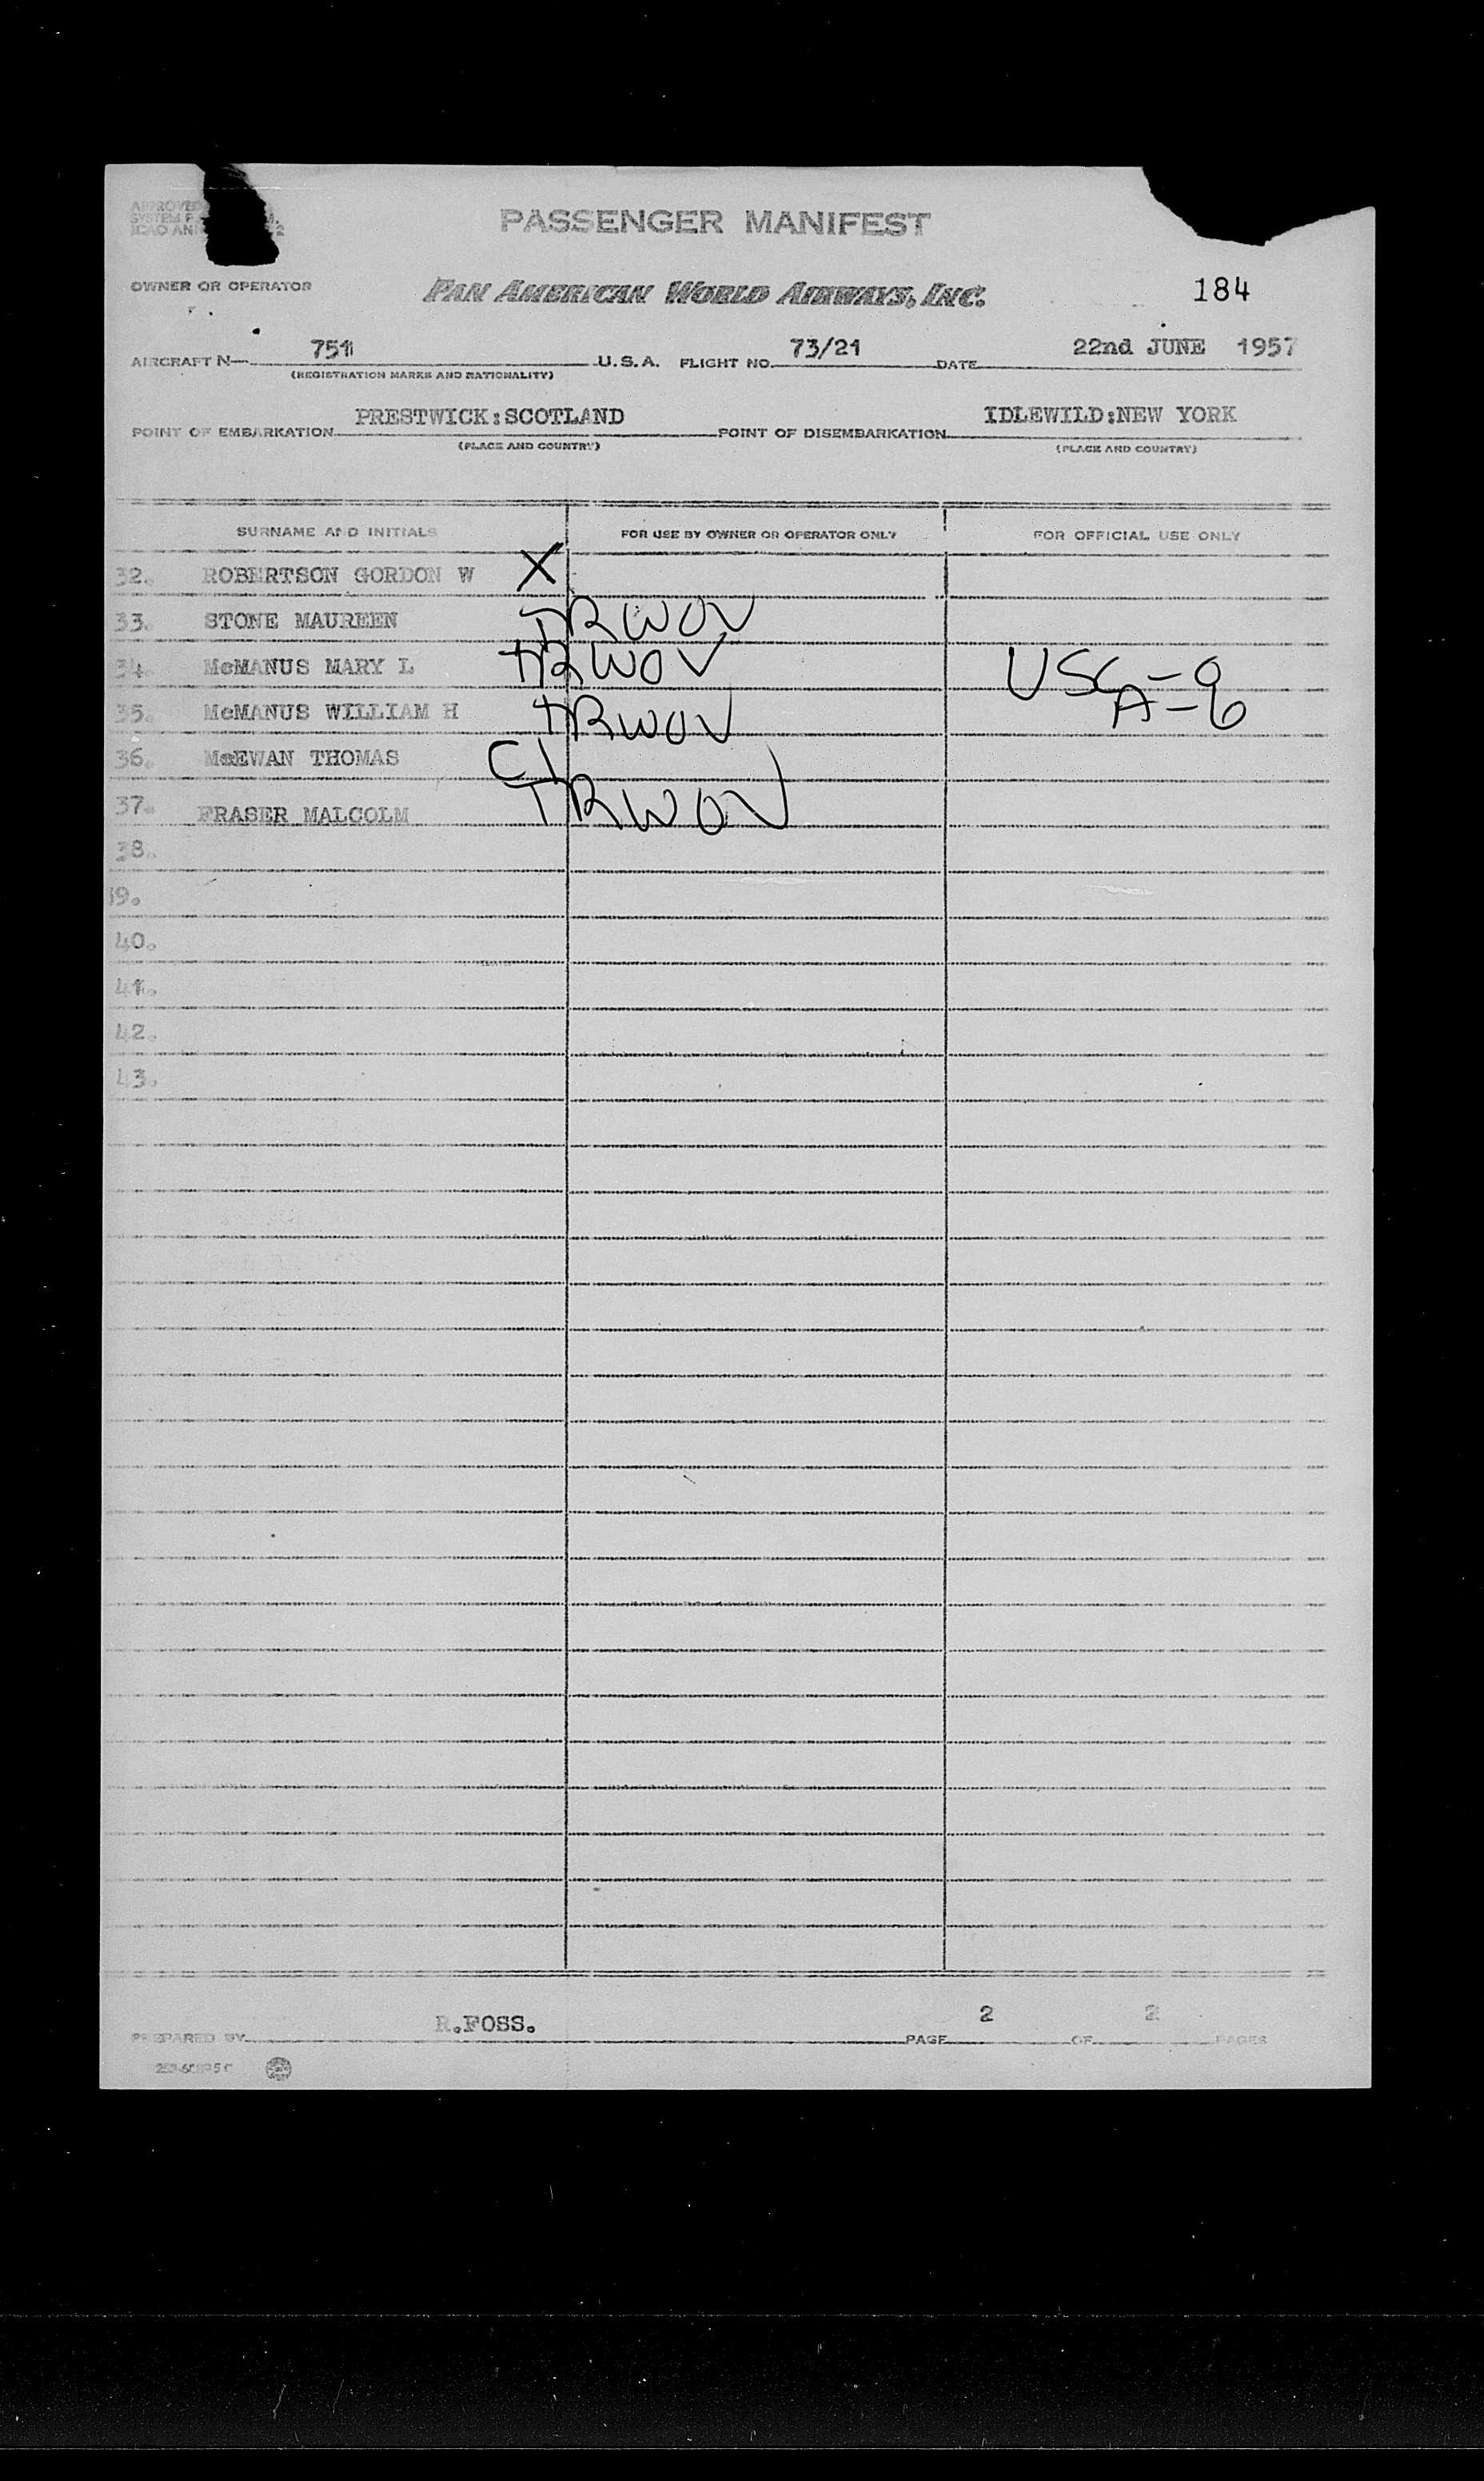 APPROVED
SYSTEM F
ICAO ANN 2
PASSENGER MANIFEST
OWNER OR OPERATOR
PAN AMERICAN WORLD AIRWAYS, INC.
184
AIRCRAFT N— 751 U.S.A. FLIGHT NO. 73/21 DATE 22nd JUNE 1957
(REGISTRATION MARKS AND NATIONALITY)
POINT OF EMBARKATION PRESTWICK:SCOTLAND POINT OF DISEMBARKATION IDLEWILD:NEW YORK
(PLACE AND COUNTRY) (PLACE AND COUNTRY)
SURNAME AND INITIALS FOR USE BY OWNER OR OPERATOR ONLY FOR OFFICIAL USE ONLY
32. ROBERTSON GORDON W X
33. STONE MAUREEN TRWOV
34. McMANUS MARY L TRWOV USC - 9
35. McMANUS WILLIAM H TRWOV A - 6
36. McEWAN THOMAS C1
37. FRASER MALCOLM TRWOV
38.
39.
40.
41.
42.
43.
PREPARED BY R.FOSS. PAGE 2 OF 2 PAGES